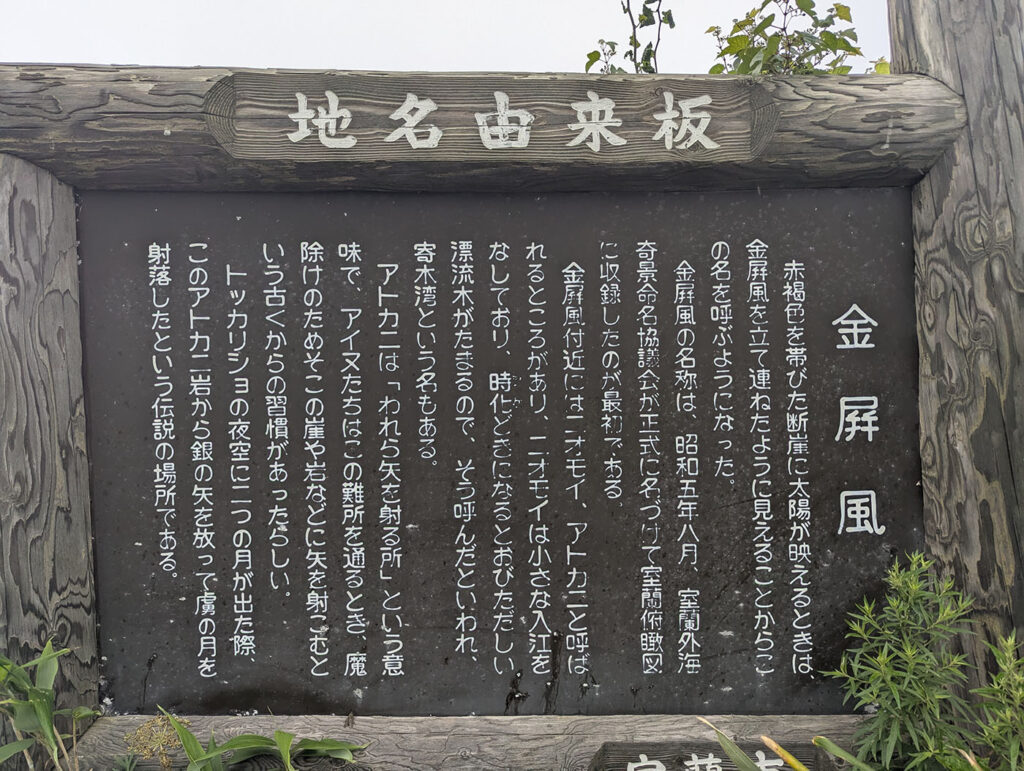 地名由来板
金屛風
赤褐色を帯びた断崖に太陽が映えるときは、
金屛風を立て連ねたように見えることからこ
の名を呼ぶようになった。
金屛風の名称は、昭和五年八月、室蘭外海
奇景命名協議会が正式に名づけて室蘭俯瞰図
に収録したのが最初である。
金屛風付近にはニオモイ、アトカニと呼ば
れるところがあり、ニオモイは小さな入江を
なしており、時化どきになるとおびただしい
漂流木がたまるので、そう呼んだといわれ、
寄木湾という名もある。
アトカニは「われら矢を射る所」という意
味で、アイヌたちはこの難所を通るとき、魔
除けのためそこの崖や岩などに矢を射こむと
いう古くからの習慣があったらしい。
トッカリショの夜空に二つの月が出た際、
このアトカニ岩から銀の矢を放って虜の月を
射落したという伝説の場所である。